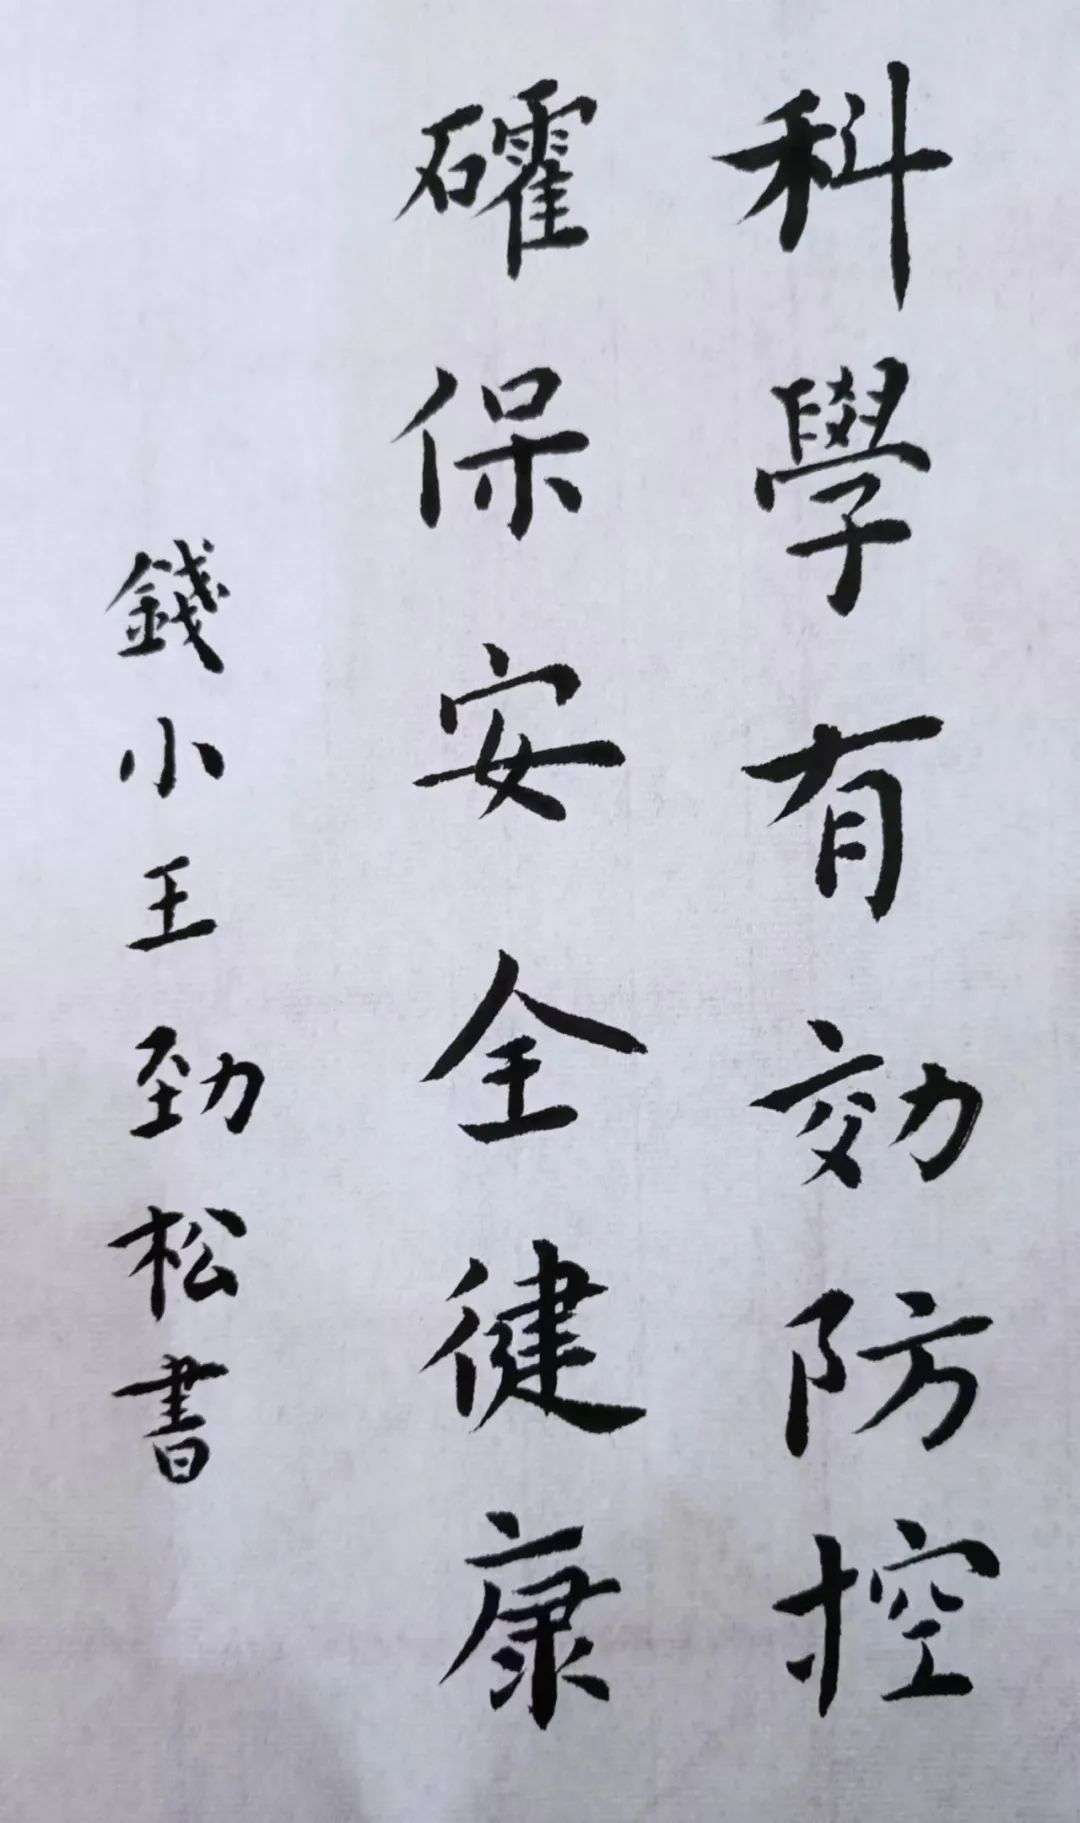 科學有効防控
礭保安全健康
錢小王勁松書